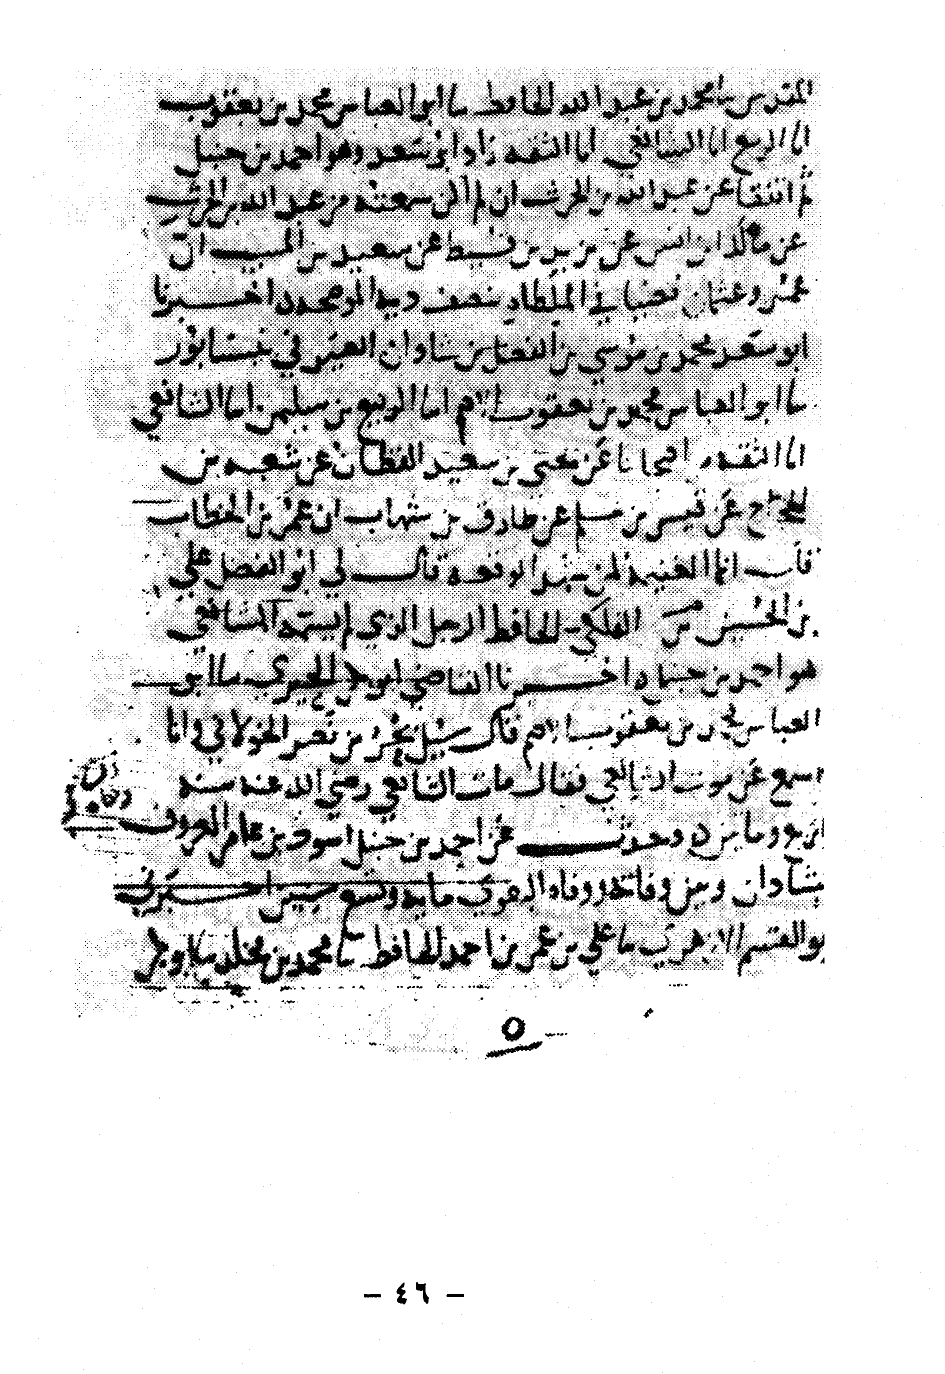 محمد بن عبد الله الحافظ ثنا ابو العباس محمد بن يعقوب
انا الربيع انا الشافعي انا الثقه زاد ابو سعد وهو احمد بن حنبل
ثم اتفقا عن عبد الله بن الحرث ان لم اكن سمعته من عبد الله بن الحرث
عن مالك ابن انس عن يزيد بن قسيط عن سعيد بن المسيب ان
عمر وعثمان قضيا في الملطاه بنصف ديه الموضحه اخبرنا
ابو سعد محمد بن موسي بن الفضل بن شاذان الصيرفي بنيسابور
ثنا ابو العباس محمد بن يعقوب الاصم انا الربيع بن سليمن انا الشافعي
انا الثقه من اصحابنا عن يحيى بن سعيد القطان عن شعبه بن
الحجاج عن قيس بن مسلم عن طارق بن شهاب ان عمر بن الخطاب
قال انما الغنيمه لمن شهد الوقعه قال لي ابو الفضل علي
بن الحسين الفلكي الحافظ الرجل الذي لم يسمه الشافعي
هو احمد بن حنبل اخبرنا القاضي ابو بكر الحيري ثنا ابو
العباس محمد بن يعقوب الاصم قال سئل بحر بن نصر الخولاني وانا
اسمع عن موت الشافعي فقال مات الشافعي رضي الله عنه سنه
اربع وماتين وحدث عن احمد بن حنبل اسود بن عامر المعروف
بشاذان وبين وفاته ووفاه البغوي مايه وتسع سنين اخبرني
ابو القسم الازهري ثنا علي بن عمر بن احمد الحافظ ثنا محمد بن مخلد ثنا
٥
- ٤٦ -